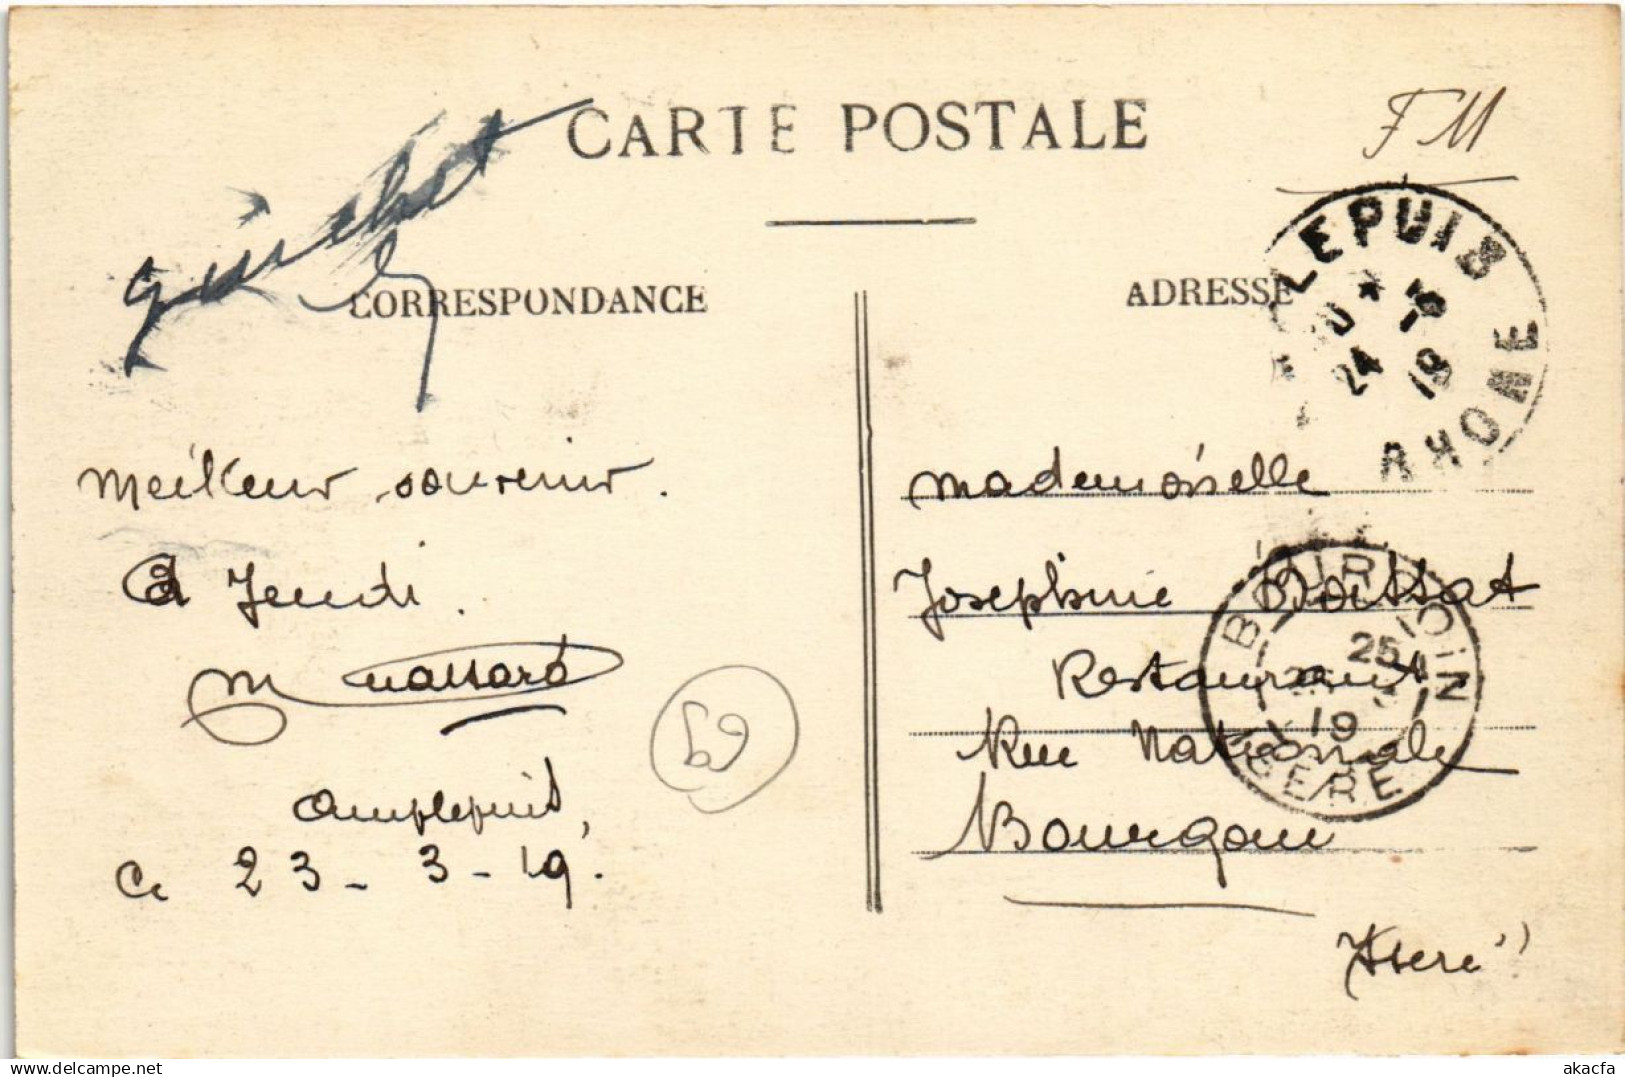 CARTE POSTALE
FM
Guichet
CORRESPONDANCE
ADRESSE
LEPUIS
* 3
24 19
RHONE
Meilleur souvenir.
à Jeudi.
M massard
69
Amplepuis,
Ce 23-3-19.
Mademoiselle
Josephine Boissat
Restaurant
Rue Nationale
Bourgoin
(Isère)
BOURGOIN
25
19
ISERE
delcampe.net
akacfa